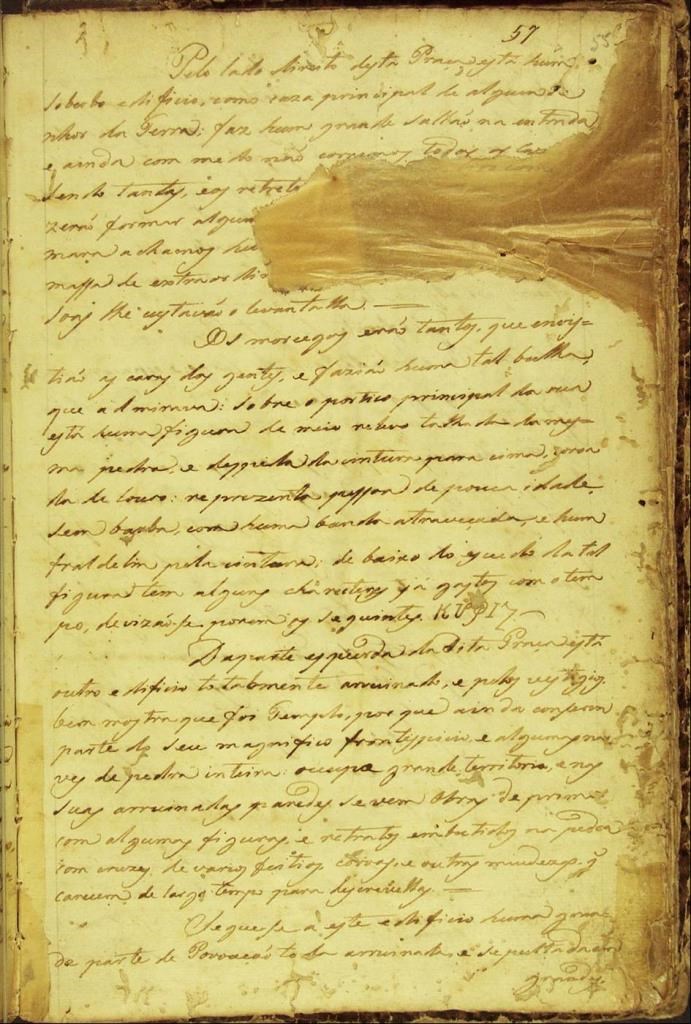 57
Pelo lado direito desta Praça está hum
soberbo edificio, como caza principal de algum Se-
nhor da Terra: faz hum grande sallaõ na entrada
e ainda com medo naõ corremos todas as caz
sendo tantas, e os retret
zeraõ formar algum
mara achamos hu
massa de extraordin
soas lhe custavaõ o levantalla. —
Os morcegos eraõ tantos, que envis=
tiaõ as caras das gentes, e faziaõ huma tal bulha,
que admirava: sobre o portico principal da rua
está huma figura de meio relevo talhada da mes=
ma pedra, e despida da cintura para cima, coroa
da de louro: reprezenta pessoa de pouca idade,
sem barba, com huma banda atraveçada, e hum
fraldelim pela cintura: debaixo do escudo da tal
figura tem alguns charateres já gastos com o tem
po, divizaõ-se porem os seguintes KUΦI7
Da parte esquerda da dita Praça está
outro edificio totalmente arruinado, e pelos vestigios
bem mostra que foi Templo, por que ainda conserva
parte do seu magnifico frontespicio, e algumas na
ves de pedra inteira: occupa grande territorio, e nas
suas arruinadas paredes se vem Obras de prim
com algumas figuras, e retratos embutidos na pedra
com cruzes de varios feitios, corvos, e outras miudezas, q
carecem de largo tempo para descrevellas. —
Segue-se a este edificio huma gran
de parte de Povoaçaõ toda arruinada, e sepultada em
grandes